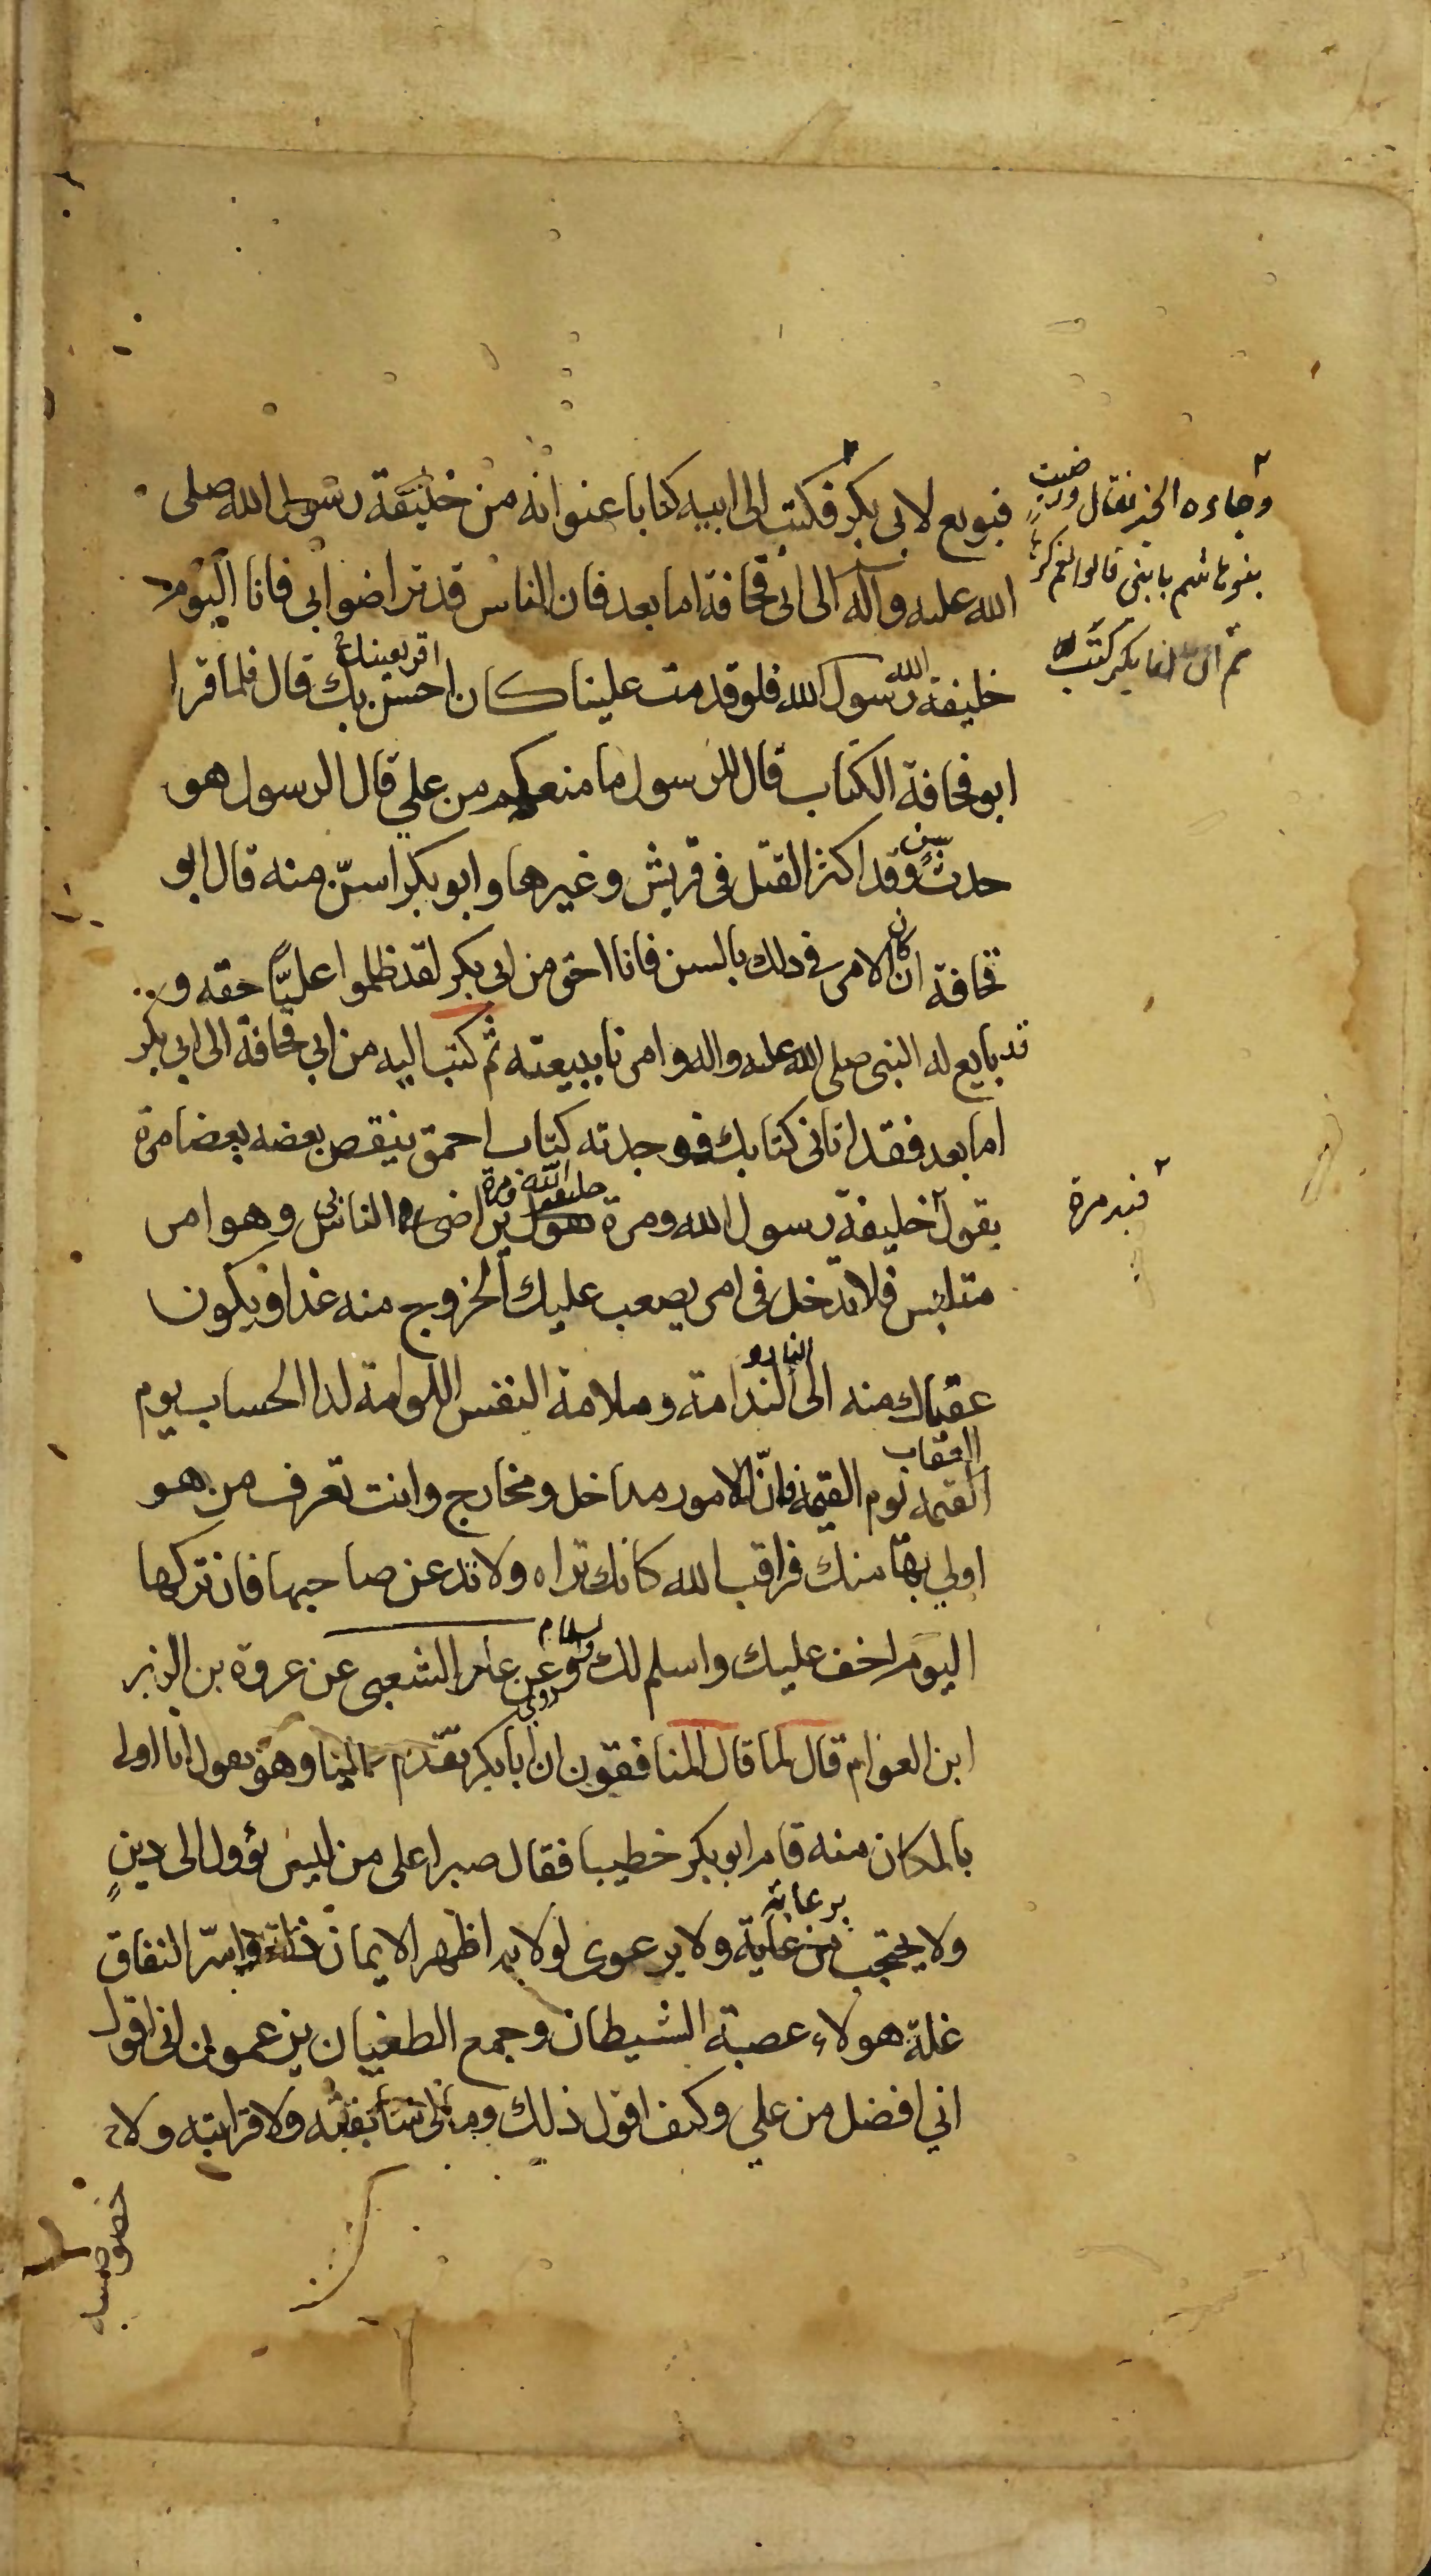 فبويع لابي بكر فكتب الى ابيه كتابا عنوانه من خليفة رسول الله صلى
الله عليه وآله الى ابي قحافة اما بعد فان الناس قد تراضوا بي فانا اليوم
خليفة الله رسول الله فلو قدمت علينا كان احسن بك اقر بعينك قال فلما قرا
ابو قحافة الكتاب قال للرسول ما منعكم من علي قال الرسول هو
حدث وقد اكثر القتل في قريش وغيرها وابو بكر اسن منه قال ابو
قحافة ان كان الامر في ذلك بالسن فانا احق من ابي بكر لقد ظلموا عليّا حقه و
قد بايع له النبي صلى الله عليه واله وامرنا ببيعته ثم كتب اليه من ابي قحافة الى ابي بكر
اما بعد فقد اتاني كتابك فوجدته كتاب احمق ينقص بعضه بعضا مرة
يقول خليفة رسول الله ومرة خليفة الله ومرة تراضى الناس بي وهو امر
متلبس فلا تدخل في امر يصعب عليك الخروج منه غدا ويكون
عقباك منه الى النار و الندامة وملامة النفس اللوامة لدا الحساب يوم
العقاب
القيمة يوم القيمة فانّ للامور مداخل ومخارج وانت تعرف من هو
اولي بها منك فراقب الله كانك تراه ولا تدعن صاحبها فان تركها
اليوم اخف عليك واسلم لك والسلام وروي عن عامر الشعبي عن عروة بن الزبر
ابن العوام قال لما قال المنافقون ان ابا بكر تقدم عليا وهو يقول انا اولى
بالمكان منه قام ابو بكر خطيبا فقال صبرا على من ليس يؤول الى دينٍ
ولا يحتجب برعاية ولا يرعوى لولاية اظهر الايمان ذلة واسرّ النفاق
غلة هولاء عصبة الشيطان وجمع الطغيان يزعمون اني اقول
اني افضل من علي وكيف اقول ذلك ومالي سابقته ولا قرابته ولا
خصوصيته
وجاءه الخبر فقال ورضيت
بنو هاشم بابني قالوا نعم
ثم ان ابا بكر كتب
فبد مرة